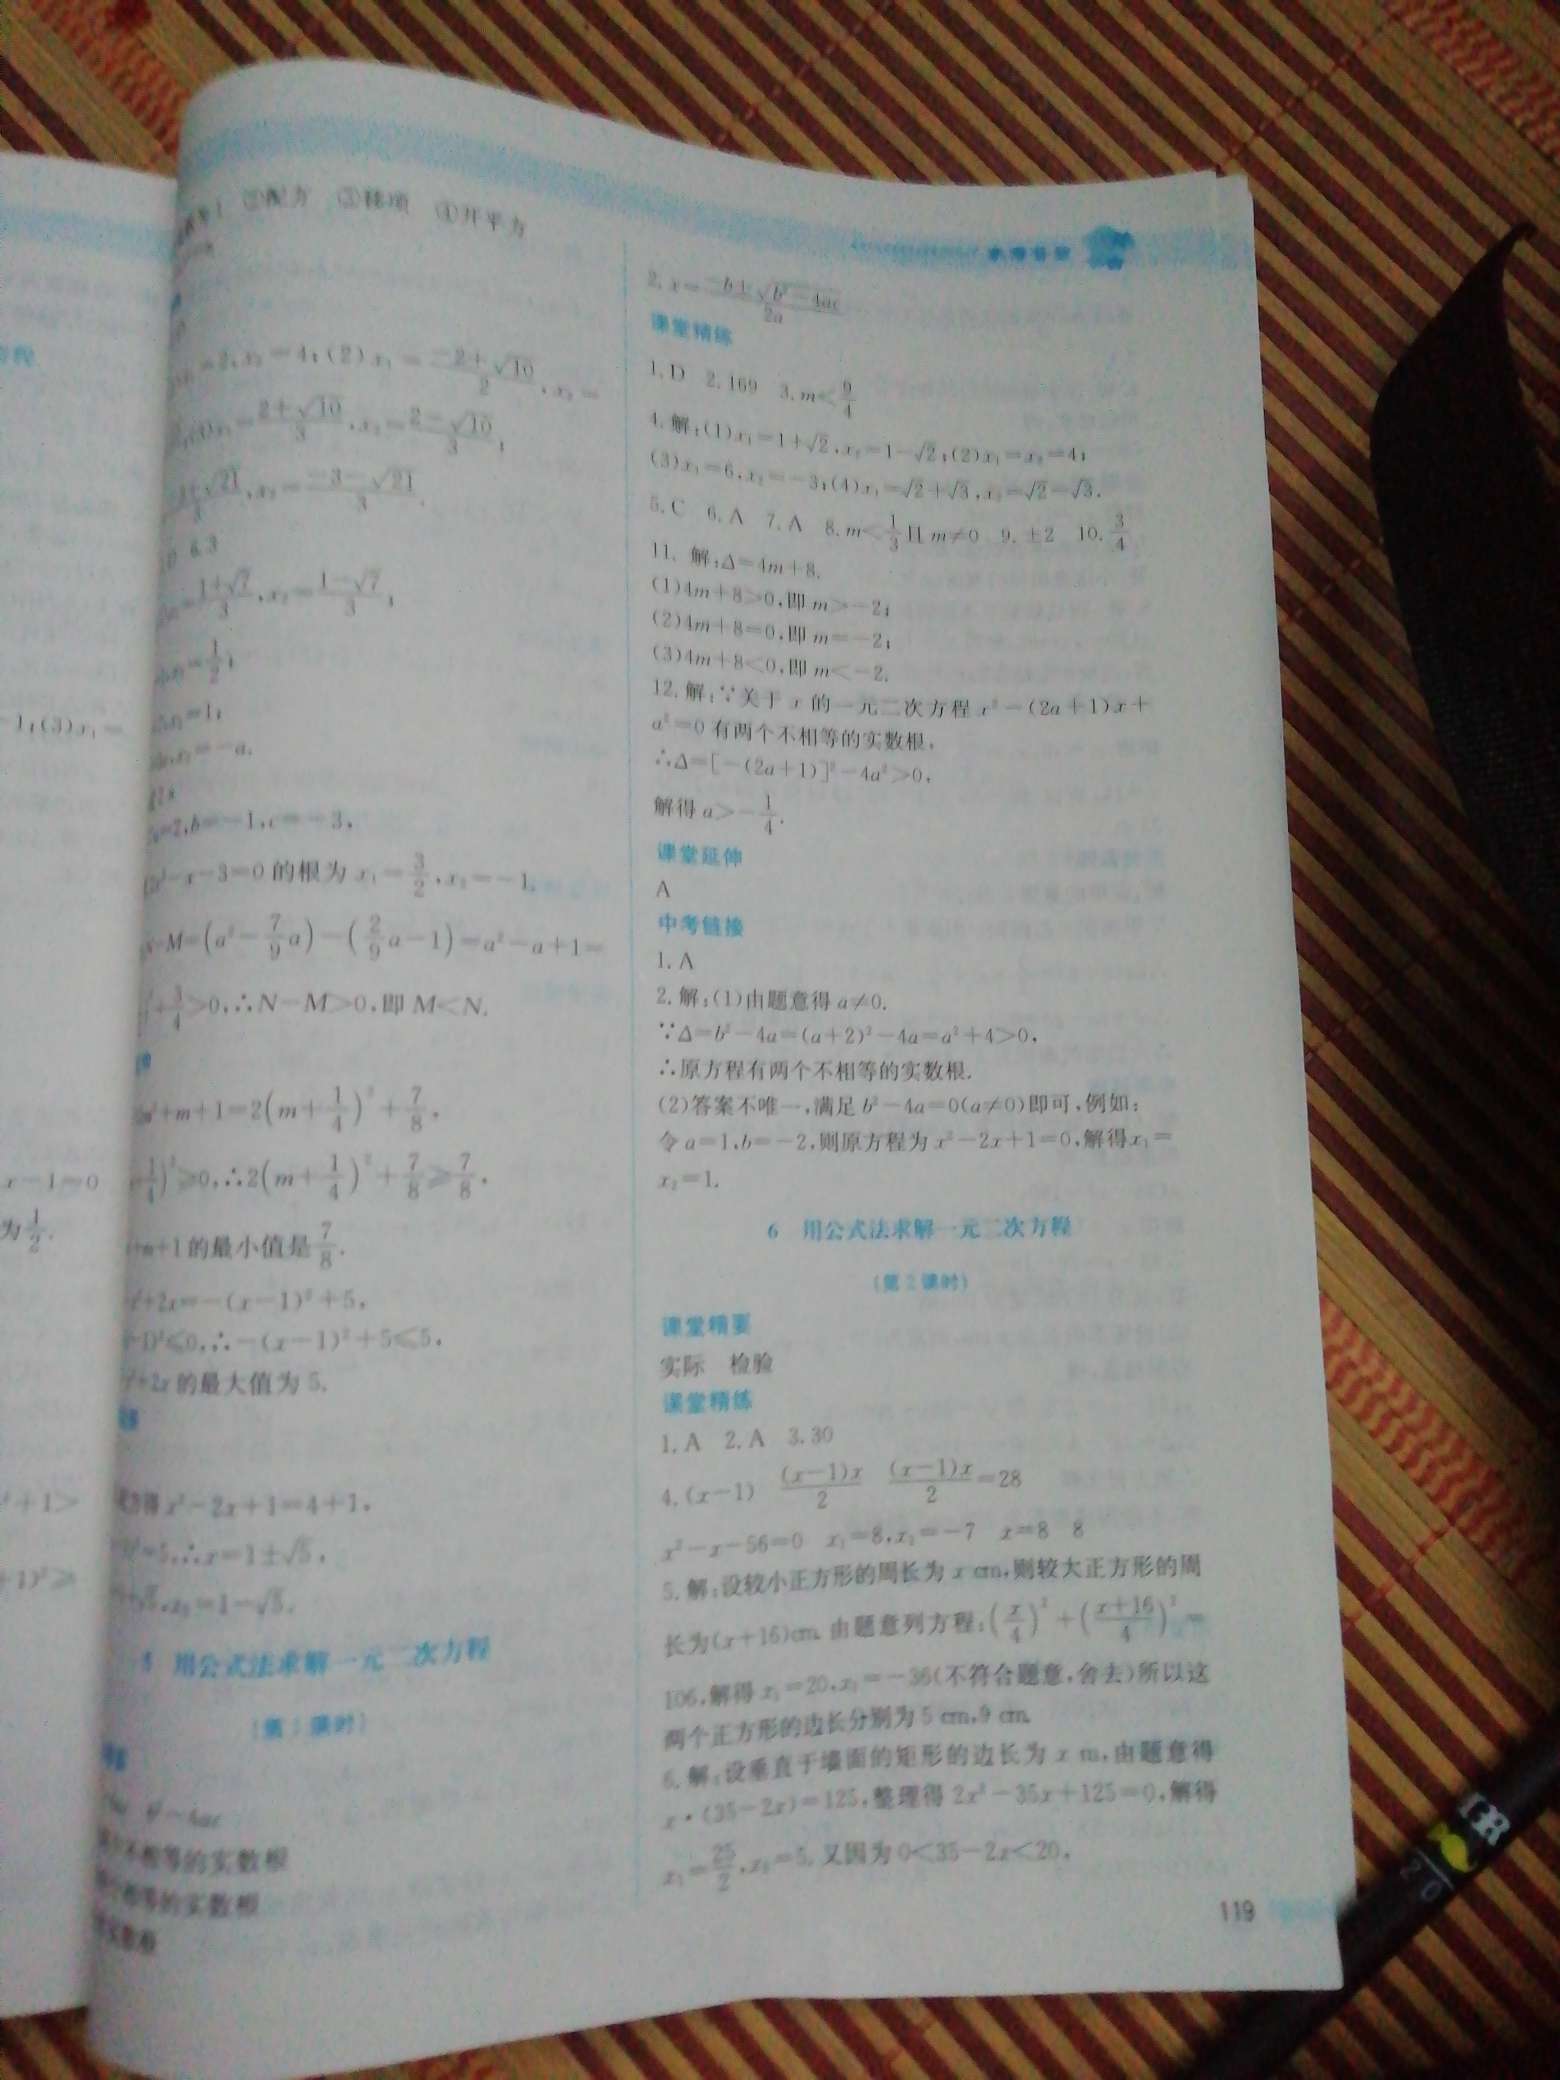 方程
-1;(3)x₁=
x-1=0
为1/2.
²+1>
+1)²≥
②配方 ③移项 ④开平方
=2,x₂=4;(2)x₁=(-2+√10)/2,x₂=
x₁=(2+√10)/3,x₂=(2-√10)/3;
+√21/3,x₂=(-3-√21)/3.
6.3
=(1+√7)/3,x₂=(1-√7)/3;
=1/2;
=1;
x₂=-a.
=2,b=-1,c=-3,
2x²-x-3=0的根为x₁=3/2,x₂=-1.
N-M=(a²-7/9a)-(2/9a-1)=a²-a+1=
+3/4>0,∴N-M>0,即M<N.
m²+m+1=2(m+1/4)²+7/8,
1/4)²≥0,∴2(m+1/4)²+7/8≥7/8,
+m+1的最小值是7/8.
x²+2x=-(x-1)²+5,
-1)²≤0,∴-(x-1)²+5≤5,
x²+2x的最大值为5.
得x²-2x+1=4+1,
=5,∴x=1±√5,
+√5,x₂=1-√5.
5 用公式法求解一元二次方程
(第1课时)
b²-4ac
不相等的实数根
相等的实数根
实数根
参考答案
2.x=(-b±√(b²-4ac))/2a
课堂精练
1.D 2.169 3.m<9/4
4.解:(1)x₁=1+√2,x₂=1-√2;(2)x₁=x₂=4;
(3)x₁=6,x₂=-3;(4)x₁=√2+√3,x₂=√2-√3.
5.C 6.A 7.A 8.m<1/3且m≠0 9.±2 10.3/4
11.解:Δ=4m+8.
(1)4m+8>0,即m>-2;
(2)4m+8=0,即m=-2;
(3)4m+8<0,即m<-2.
12.解:∵关于x的一元二次方程x²-(2a+1)x+
a²=0有两个不相等的实数根,
∴Δ=[-(2a+1)]²-4a²>0,
解得a>-1/4.
课堂延伸
A
中考链接
1.A
2.解:(1)由题意得a≠0.
∵Δ=b²-4a=(a+2)²-4a=a²+4>0,
∴原方程有两个不相等的实数根.
(2)答案不唯一,满足b²-4a=0(a≠0)即可,例如:
令a=1,b=-2,则原方程为x²-2x+1=0,解得x₁=
x₂=1.
6 用公式法求解一元二次方程
(第2课时)
课堂精要
实际 检验
课堂精练
1.A 2.A 3.30
4.(x-1) (x-1)x/2 (x-1)x/2=28
x²-x-56=0 x₁=8,x₂=-7 x=8 8
5.解:设较小正方形的周长为x cm,则较大正方形的周
长为(x+16)cm.由题意列方程:(x/4)²+((x+16)/4)²=
106,解得x₁=20,x₂=-36(不符合题意,舍去)所以这
两个正方形的边长分别为5 cm,9 cm.
6.解:设垂直于墙面的矩形的边长为x m,由题意得
x·(35-2x)=125,整理得2x²-35x+125=0,解得
x₁=25/2,x₂=5.又因为0<35-2x<20,
119